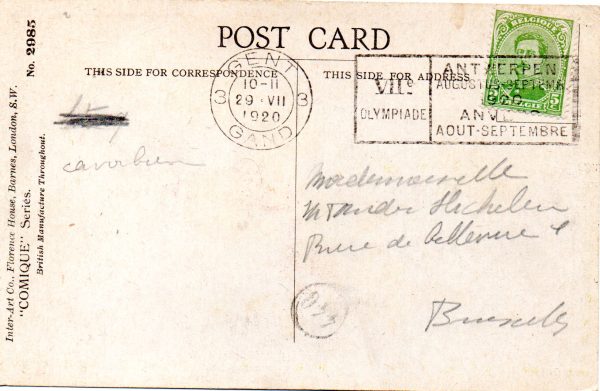 POST CARD
THIS SIDE FOR CORRESPONDENCE
THIS SIDE FOR ADDRESS
No. 2985
Inter-Art Co., Florence House, Barnes, London, S.W.
"COMIQUE" Series.
British Manufacture Throughout.
GENT
10-11
3 29 VII 3
1920
GAND
VIIe
OLYMPIADE
ANTWERPEN
AUGUSTUS-SEPTEMB
1920
ANVERS
AOUT-SEPTEMBRE
BELGIQUE
5 5
BELGIE
Mademoiselle
de